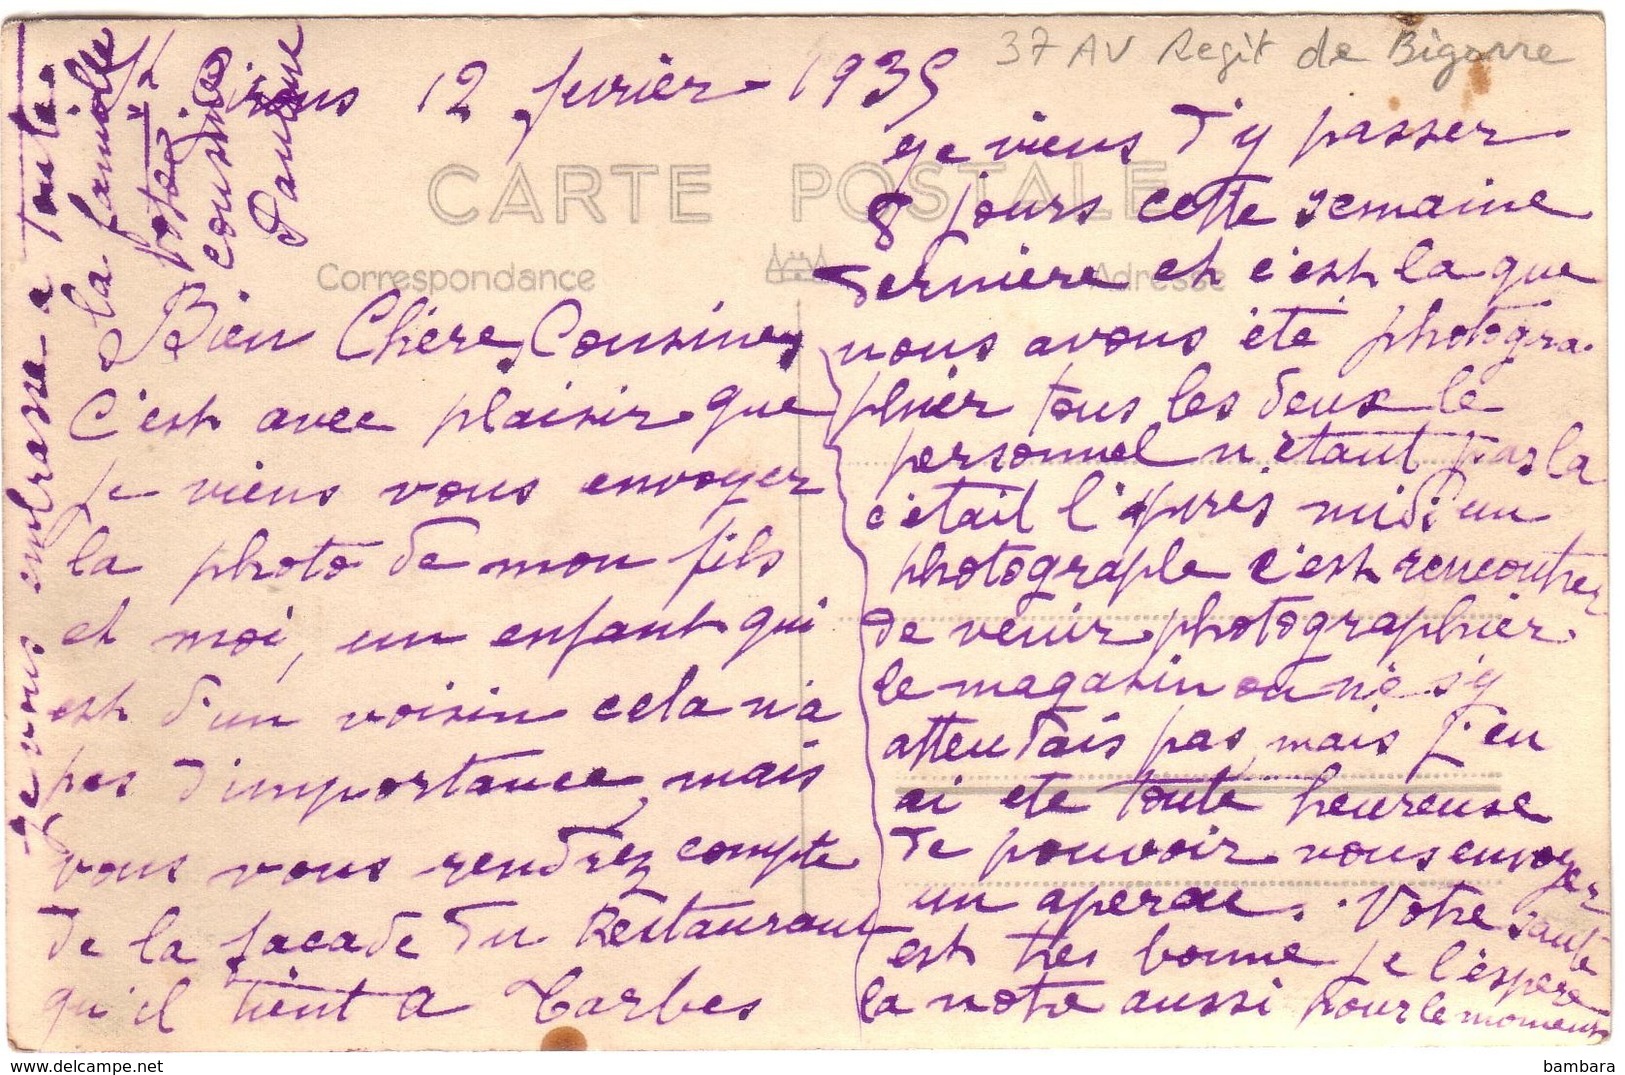 37 AV Regit de Bigorre
12 fevrier 1935
CARTE POSTALE
Correspondance
Adresse
Bien Chère Cousine,
C'est avec plaisir que
je viens vous envoyer
la photo de mon fils
et moi, un enfant qui
est d'un voisin cela n'a
pas d'importance, mais
vous vous rendrez compte
de la facade du Restaurant
qu'il tient a Tarbes
je viens d'y passer
8 jours cette semaine
derniere et c'est la que
nous avons été photogra-
phier tous les deux le
personnel n'étant pas la
c'était l'après midi un
photographe c'est rencontrer
de venir photographier
le magasin on ne s'y
attendais pas, mais j'en
ai ete toute heureuse
de pouvoir vous envoyer
un apercue. Votre santé
est tres bonne je l'espere
la notre aussi pour le moment
Je vous embrasse a toute
la famille
Votre
cousine
Pauline
bambara